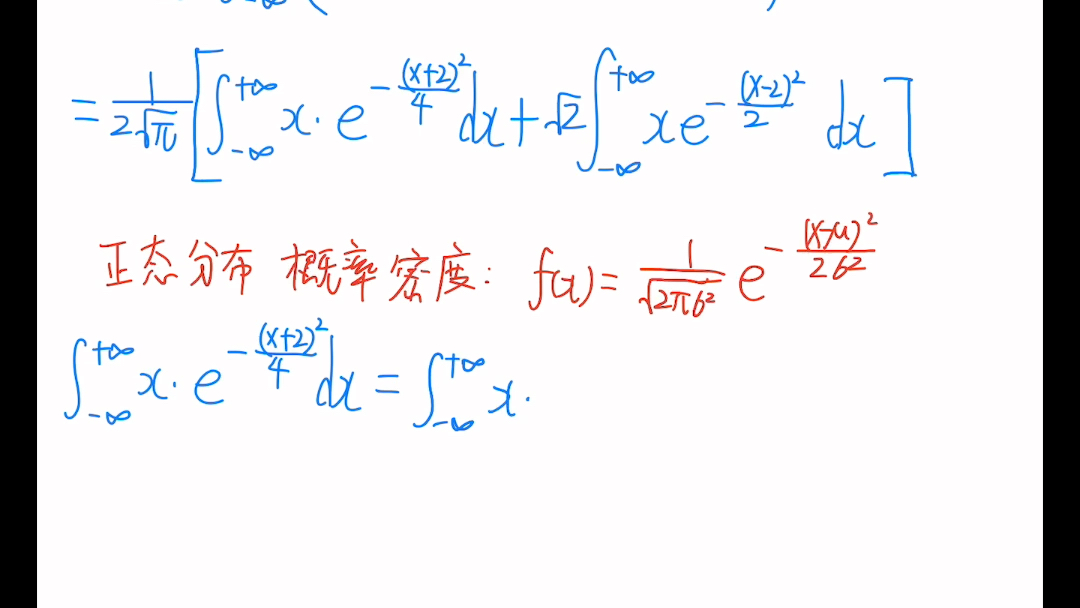 = \frac{1}{2\sqrt{\pi}} [ \int_{-∞}^{+∞} x · e^{-\frac{(x+2)^2}{4}} dx + \sqrt{2} \int_{-∞}^{+∞} x e^{-\frac{(x-2)^2}{2}} dx ]
正态分布 概率密度: f(x) = \frac{1}{\sqrt{2πσ^2}} e^{-\frac{(x-μ)^2}{2σ^2}}
\int_{-∞}^{+∞} x · e^{-\frac{(x+2)^2}{4}} dx = \int_{-∞}^{+∞} x ·